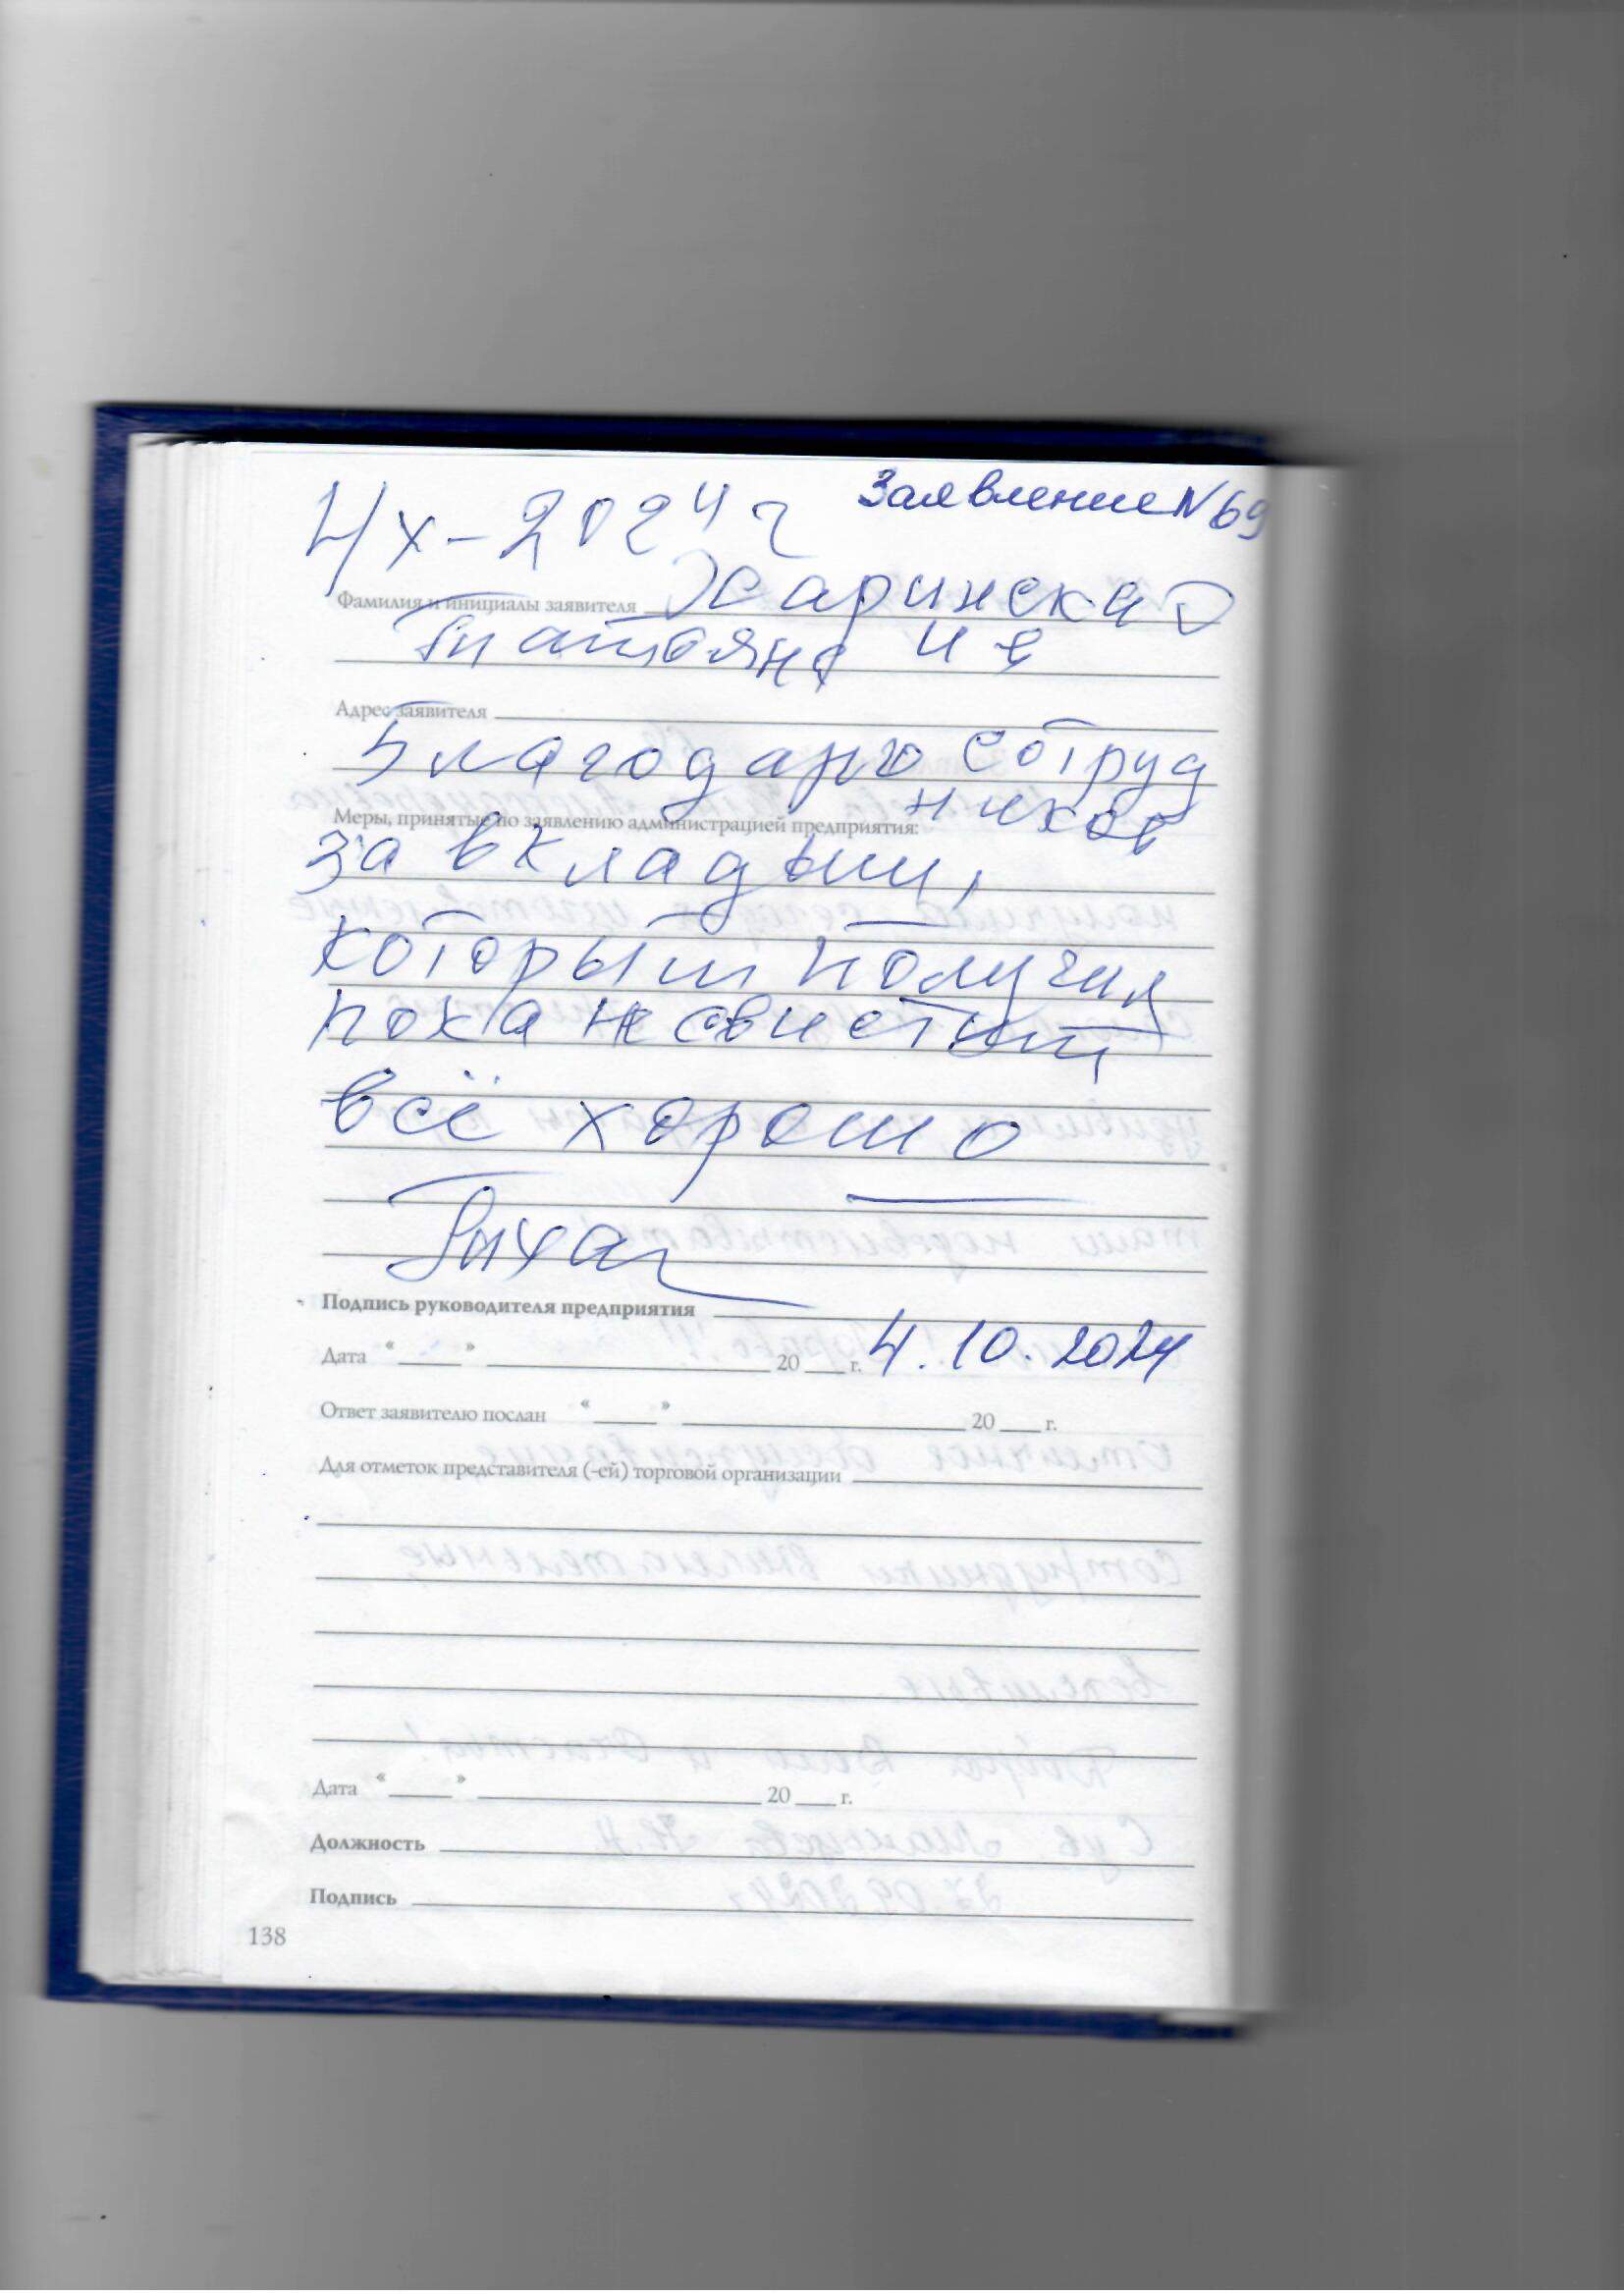 Заявление N 69
4/х-2024 г
Фамилия и инициалы заявителя Харинская
Татьяна И
Адрес заявителя
Благодарю сотруд
ников
Меры, принятые по заявлению администрацией предприятия:
за вкладыш,
который получил
пока не свистит
всё хорошо
Подпись руководителя предприятия
Дата " " 20 г. 4.10.2024
Ответ заявителю послан " " 20 г.
Для отметок представителя (-ей) торговой организации
Дата " " 20 г.
Должность
Подпись
138